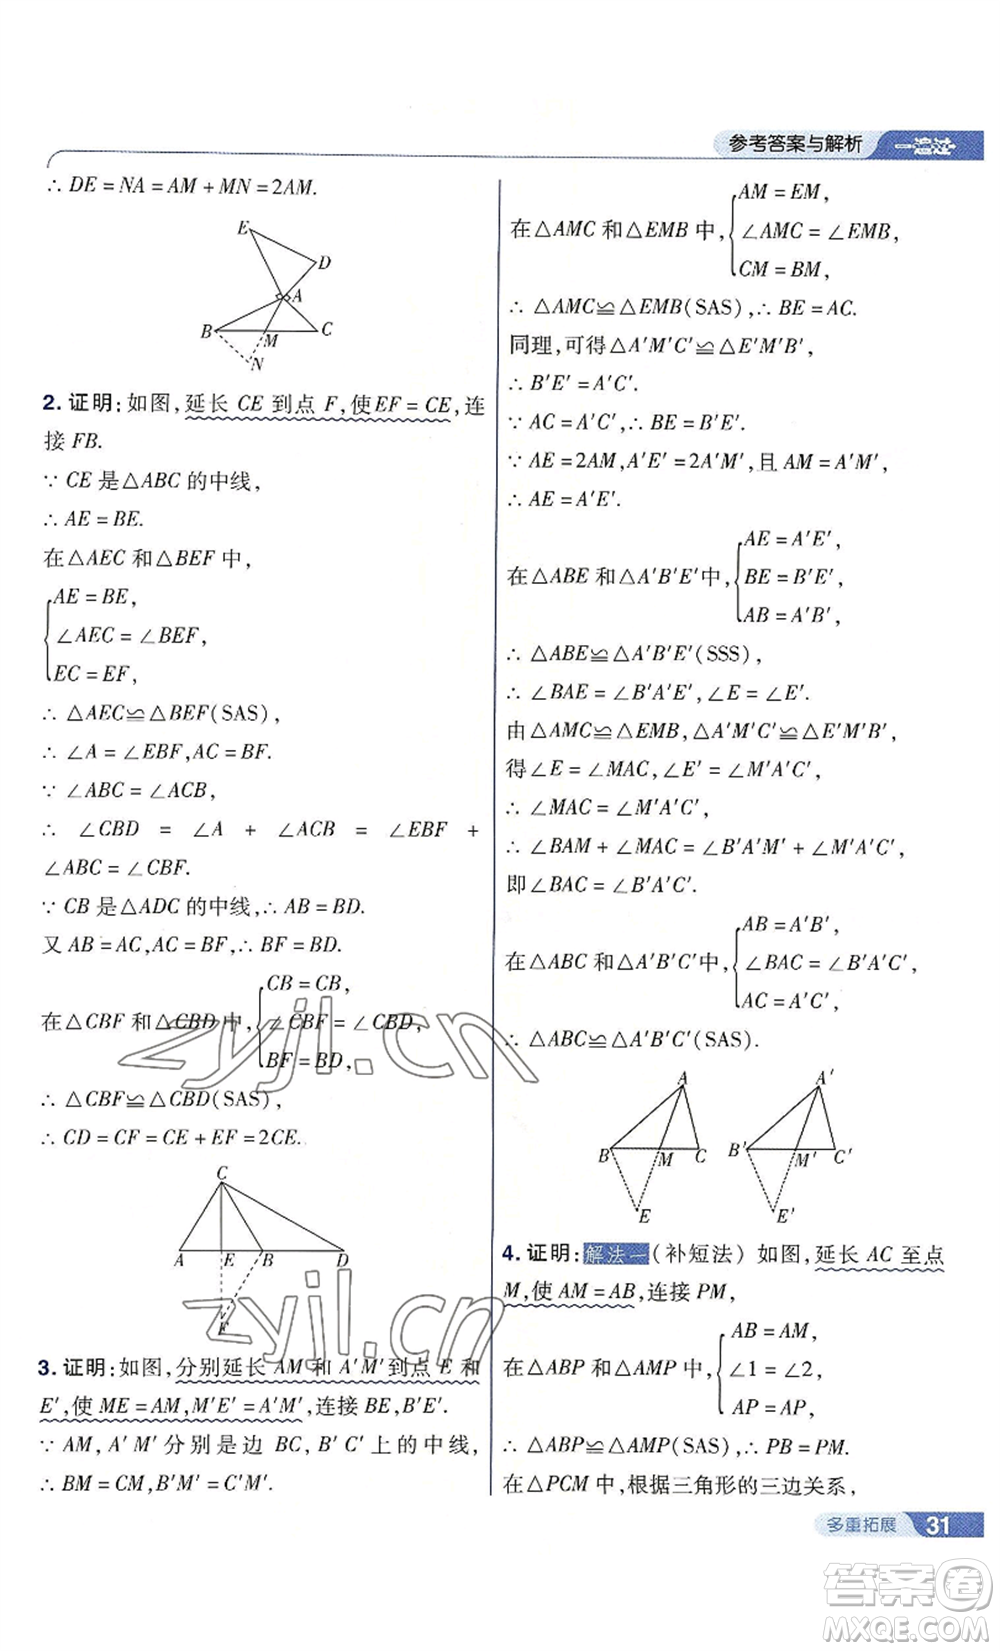 参考答案与解析 一遍过
∴ DE = NA = AM + MN = 2AM.
E
D
A
B
M
C
N
2. 证明:如图,延长 CE 到点 F,使EF = CE,连
接 FB.
∵ CE 是△ABC 的中线,
∴ AE = BE.
在△AEC 和△BEF 中,
AE = BE,
∠AEC = ∠BEF,
EC = EF,
∴ △AEC≌△BEF(SAS),
∴ ∠A = ∠EBF,AC = BF.
∵ ∠ABC = ∠ACB,
∴ ∠CBD = ∠A + ∠ACB = ∠EBF +
∠ABC = ∠CBF.
∵ CB 是△ADC 的中线,∴ AB = BD.
又 AB = AC,AC = BF,∴ BF = BD.
CB = CB,
在△CBF 和△CBD 中, ∠CBF = ∠CBD,
BF = BD,
∴ △CBF≌△CBD(SAS),
∴ CD = CF = CE + EF = 2CE.
C
A E B D
F
3. 证明:如图,分别延长 AM 和 A′M′到点 E 和
E′,使 ME = AM,M′E′ = A′M′,连接 BE,B′E′.
∵ AM, A′M′分别是边 BC, B′C′上的中线,
∴ BM = CM,B′M′ = C′M′.
AM = EM,
在△AMC 和△EMB 中, ∠AMC = ∠EMB,
CM = BM,
∴ △AMC≌△EMB(SAS),∴ BE = AC.
同理,可得△A′M′C′≌△E′M′B′,
∴ B′E′ = A′C′.
∵ AC = A′C′,∴ BE = B′E′.
∵ AE = 2AM,A′E′ = 2A′M′,且 AM = A′M′,
∴ AE = A′E′.
AE = A′E′,
在△ABE 和△A′B′E′中, BE = B′E′,
AB = A′B′,
∴ △ABE≌△A′B′E′(SSS),
∴ ∠BAE = ∠B′A′E′,∠E = ∠E′.
由△AMC≌△EMB,△A′M′C′≌△E′M′B′,
得∠E = ∠MAC,∠E′ = ∠M′A′C′,
∴ ∠MAC = ∠M′A′C′,
∴ ∠BAM + ∠MAC = ∠B′A′M′ + ∠M′A′C′,
即∠BAC = ∠B′A′C′.
AB = A′B′,
在△ABC 和△A′B′C′中, ∠BAC = ∠B′A′C′,
AC = A′C′,
∴ △ABC≌△A′B′C′(SAS).
A A′
B M C B′ M′ C′
E E′
4. 证明:解法一(补短法) 如图,延长 AC 至点
M,使 AM = AB,连接 PM,
AB = AM,
在△ABP 和△AMP 中, ∠1 = ∠2,
AP = AP,
∴ △ABP≌△AMP(SAS),∴ PB = PM.
在△PCM 中,根据三角形的三边关系,
多重拓展 31
zyjl.cn
zyjl.cn
答案圈
MXQE.COM